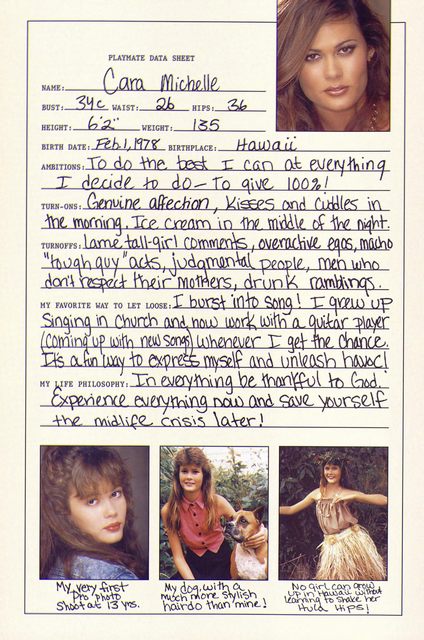 PLAYMATE DATA SHEET
NAME: Cara Michelle
BUST: 34C WAIST: 26 HIPS: 36
HEIGHT: 6'2" WEIGHT: 135
BIRTH DATE: Feb.1,1978 BIRTHPLACE: Hawaii
AMBITIONS: To do the best I can at everything
I decide to do—To give 100%!
TURN-ONS: Genuine affection, Kisses and cuddles in
the morning. Ice cream in the middle of the night.
TURNOFFS: lame tall-girl comments, overactive egos, macho
"tough guy" acts, judgmental people, men who
don't respect their mothers, drunk ramblings.
MY FAVORITE WAY TO LET LOOSE: I burst into song! I grew up
singing in church and now work with a guitar player
(coming up with new songs) whenever I get the chance.
It's a fun way to express myself and unleash havoc!
MY LIFE PHILOSOPHY: In everything be thankful to God.
Experience everything now and save yourself
the midlife crisis later!
My very first
Pro photo
shoot at 13 yrs.
My dog, with a
much more stylish
hairdo than mine!
No girl can grow
up in Hawaii without
learning to shake her
Hula Hips!